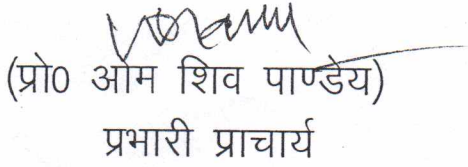 (प्रो0 ओम शिव पाण्डेय)
प्रभारी प्राचार्य